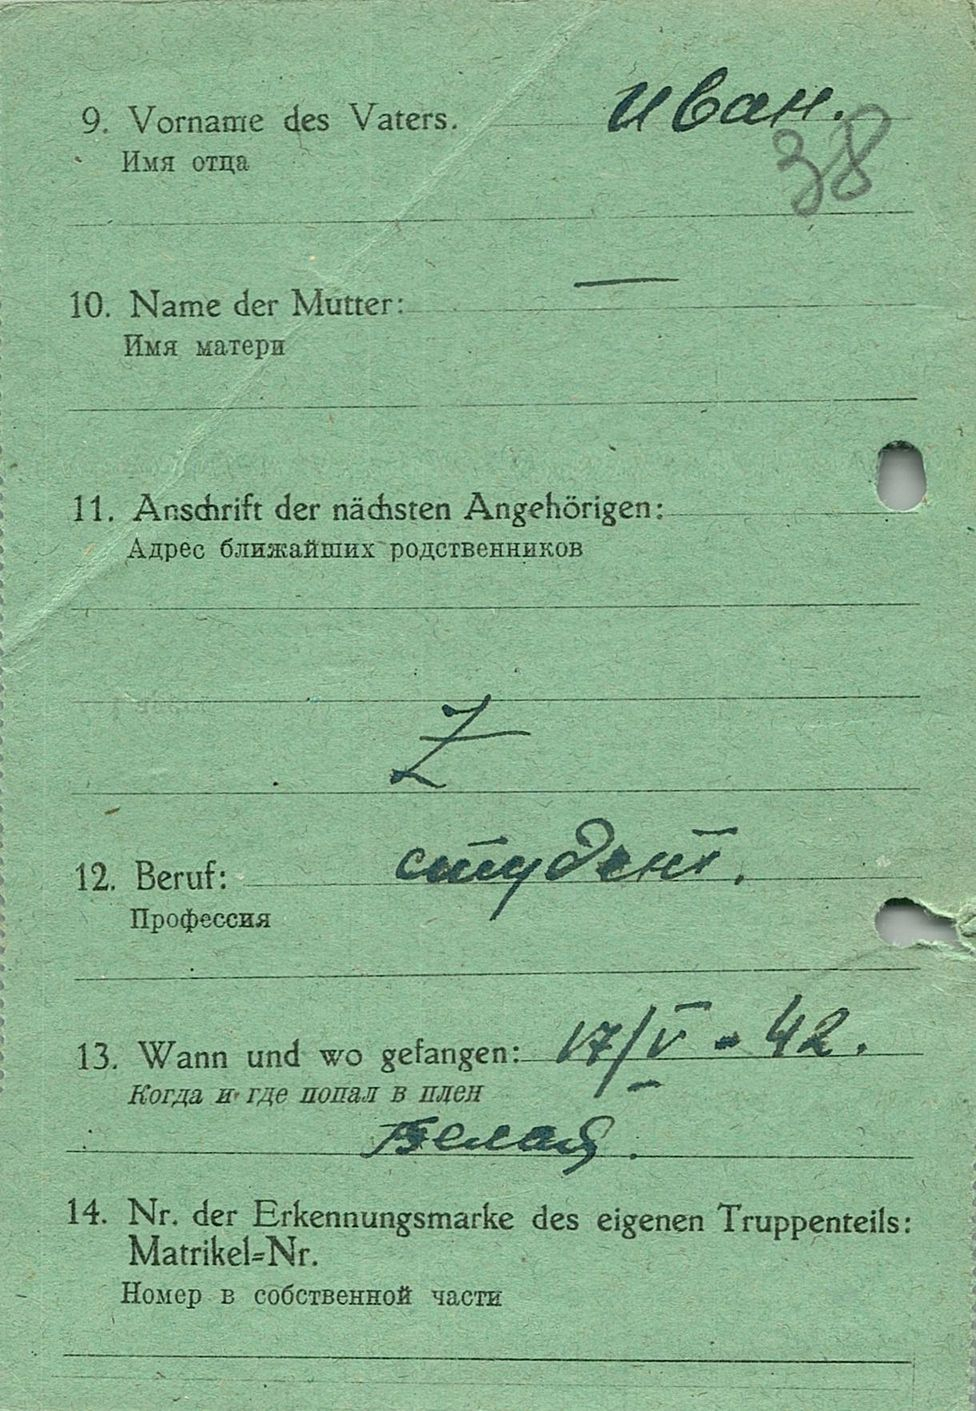 9. Vorname des Vaters. Иван.
Имя отца
38
10. Name der Mutter: —
Имя матери
11. Anschrift der nächsten Angehörigen:
Адрес ближайших родственников
Z
12. Beruf: студент.
Профессия
13. Wann und wo gefangen: 17/V - 42.
Когда и где попал в плен
Белая.
14. Nr. der Erkennungsmarke des eigenen Truppenteils:
Matrikel=Nr.
Номер в собственной части